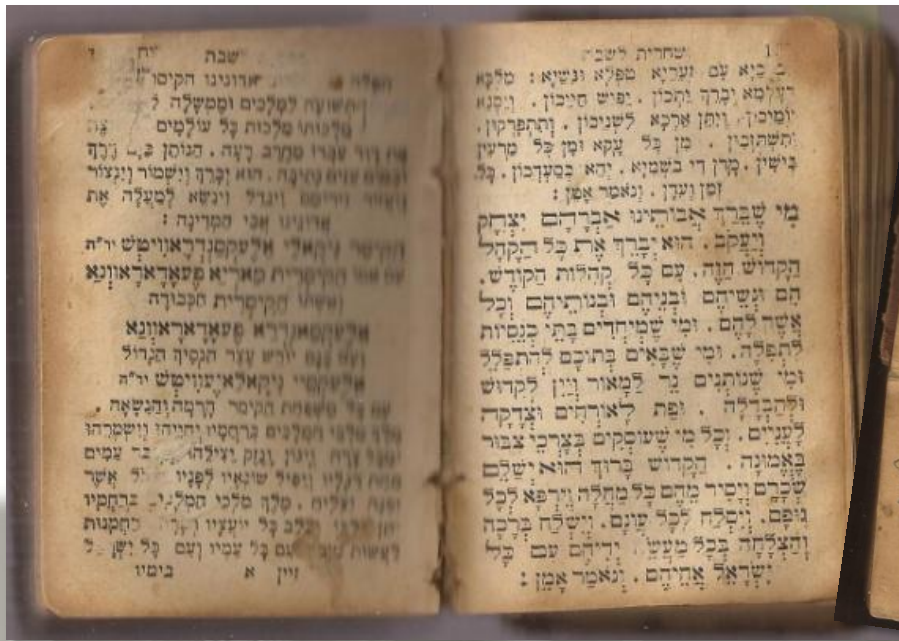 שחרית לשבת
עִם זַעֲרַיָּא טַפְלָא וּנְשַׁיָּא : מַלְכָּא
דְעָלְמָא יְבָרֵךְ יַתְכוֹן . יַפִּישׁ חַיֵּיכוֹן . וְיַסְגֵּא
יוֹמֵיכוֹן . וְיִתֵּן אַרְכָּא לִשְׁנֵיכוֹן . וְתִתְפָּרְקוּן
וְתִשְׁתֵּזְבוּן . מִן כָּל עָקָא וּמִן כָּל מַרְעִין
בִּישִׁין . מָרָן דִּי בִשְׁמַיָּא . יְהֵא בְסַעְדְּכוֹן . כָּל
זְמַן וְעִדָּן . וְנֹאמַר אָמֵן :
מִי שֶׁבֵּרַךְ אֲבוֹתֵינוּ אַבְרָהָם יִצְחָק
וְיַעֲקֹב . הוּא יְבָרֵךְ אֶת כָּל הַקָּהָל
הַקָּדוֹשׁ הַזֶּה . עִם כָּל קְהִלּוֹת הַקּוֹדֶשׁ .
הֵם וּנְשֵׁיהֶם וּבְנֵיהֶם וּבְנוֹתֵיהֶם וְכָל
אֲשֶׁר לָהֶם . וּמִי שֶׁמְּיַחֲדִים בָּתֵּי כְנֵסִיּוֹת
לִתְפִלָּה . וּמִי שֶׁבָּאִים בְּתוֹכָם לְהִתְפַּלֵּל
וּמִי שֶׁנּוֹתְנִים נֵר לַמָּאוֹר וְיַיִן לְקִדּוּשׁ
וּלְהַבְדָּלָה . וּפַת לָאוֹרְחִים וּצְדָקָה
לָעֲנִיִּים . וְכָל מִי שֶׁעוֹסְקִים בְּצָרְכֵי צִבּוּר
בֶּאֱמוּנָה . הַקָּדוֹשׁ בָּרוּךְ הוּא יְשַׁלֵּם
שְׂכָרָם וְיָסִיר מֵהֶם כָּל מַחֲלָה וְיִרְפָּא לְכָל
גּוּפָם . וְיִסְלַח לְכָל עֲוֹנָם . וְיִשְׁלַח בְּרָכָה
וְהַצְלָחָה בְּכָל מַעֲשֵׂה יְדֵיהֶם עִם כָּל
יִשְׂרָאֵל אֲחֵיהֶם . וְנֹאמַר אָמֵן :
שבת
אדונינו הקיסר
תשועה למלכים וממשלה
מלכותו מלכות כל עולמים
את דוד עבדו מחרב רעה . הנותן דרך
ובמים עזים נתיבה . הוא יברך וישמור וינצור
ויעזור וירומם ויגדל וינשא למעלה את
אדונינו אבי המדינה :
הקיסר ניקאליי אלעקסנדראוויטש יר״ה
עם אמו הקיסרית מאריא פעאדאראוונא
ואשתו הקיסרית הכבודה
אלעקסאנדרא פעאדאראוונא
ועם בנם יורש עצר הנסיך הגדול
אלעקסיי ניקאלאיעוויטש יר״ה
עם כל משפחת הקיסר הרמה והנשאה .
מלך מלכי המלכים ברחמיו יחייהו וישמרהו
ומכל צרה ויגון ונזק יצילהו עמים
תחת רגליו ויפיל שונאיו לפניו אשר
יפנה יצליח . מלך מלכי המלכים ברחמיו
יתן ובלב כל יועציו רחמנות
לעשות עם כל עמיו ועם כל
זיין א בימיו